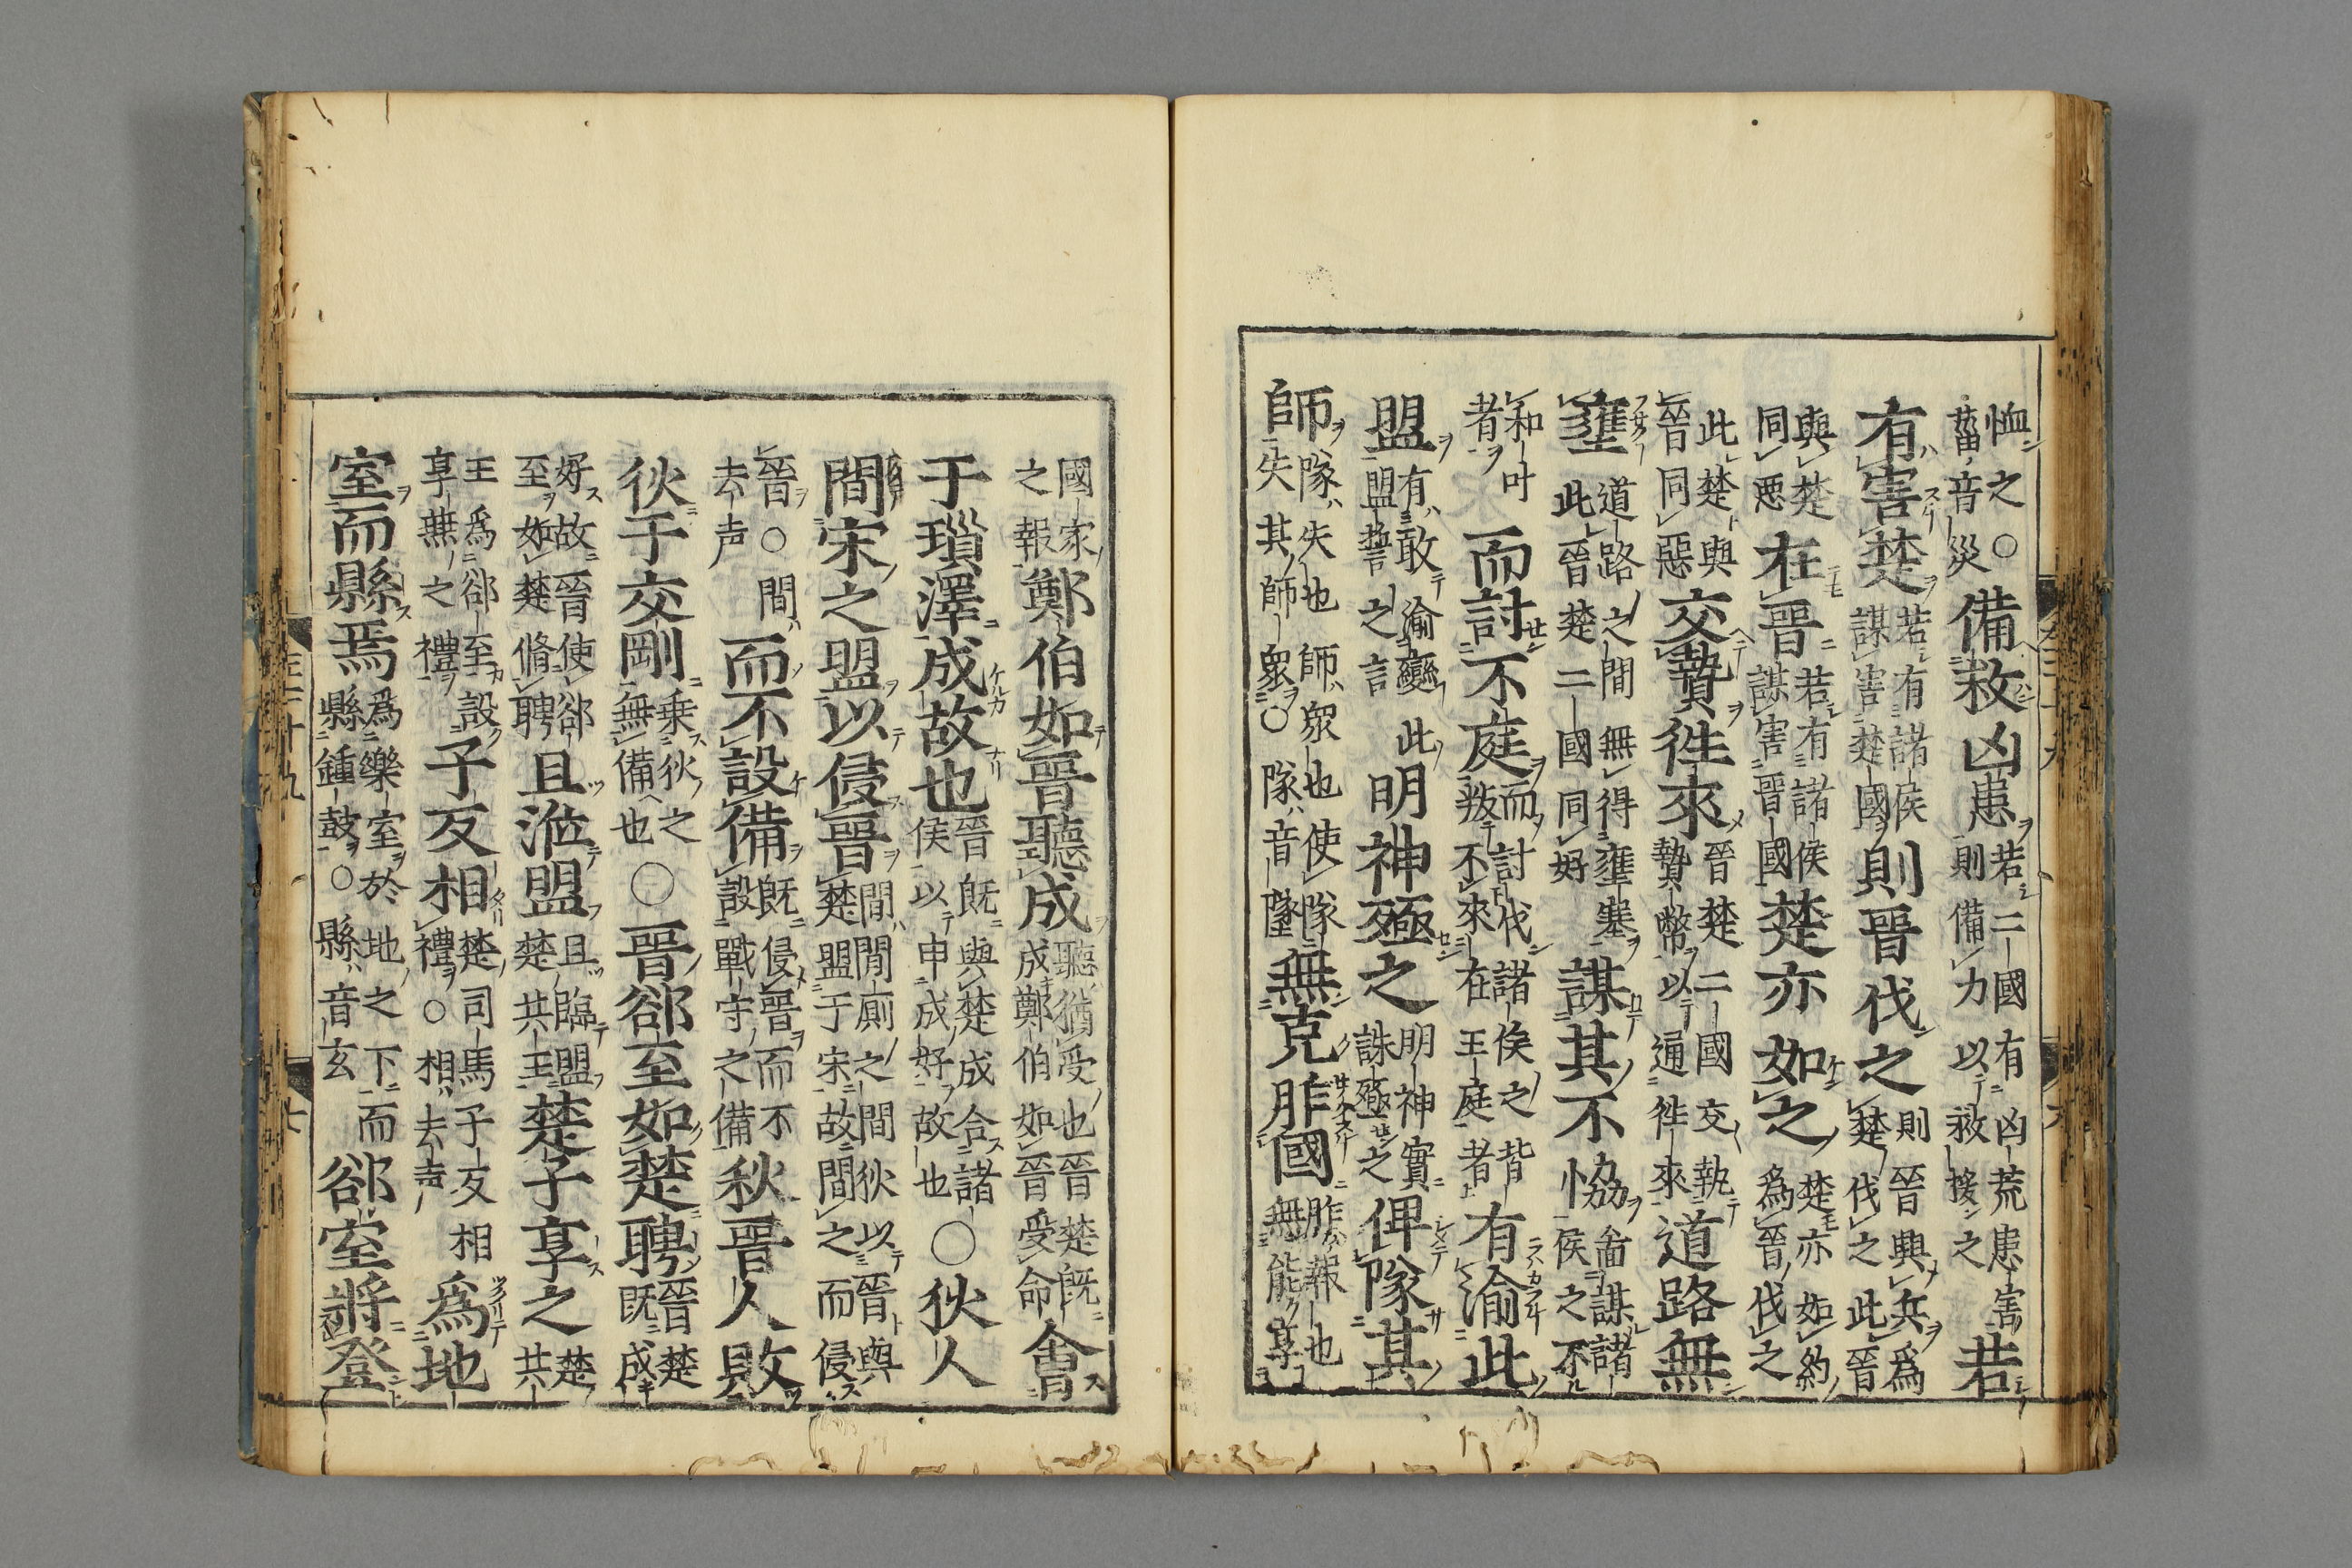 恤之○菑音災備救凶患若二國有凶荒患害則備力以救接之若
有害楚若有諸侯謀害楚國則晉伐之則晉興兵爲楚伐之此晉
與楚同惡在晉若有諸侯謀害晉國楚亦如之楚亦如約爲晉伐之
此楚與晉同惡交贄徃來晉楚二國交執贄幣以通徃來道路無
壅道路之間無得壅塞此晉楚二國同好謀其不恊啚謀諸侯之不
和叶者而討不庭而討伐諸侯之背叛不來在王庭者有渝此
盟有敢渝變此盟誓之言明神殛之明神實誅殛之俾隊其
師隊失也師衆也使隊失其師衆○隊音墜無克胙國胙報也無能享
國家之報鄭伯如晉聽成聽猶受也晉楚既成鄭伯如晉受命會
于瑣澤成故也晉既與楚成合諸侯以申成好故也○狄人
間宋之盟以侵晉間閒廁之間狄以晉與楚盟于宋故間之而侵
晉○間去声而不設備既侵晉而不設戰守之備秋晉人敗
狄于交剛乗狄之無備也○晉郤至如楚聘晉楚既成
好故晉使郤至如楚脩聘且涖盟且臨盟楚共王楚子享之楚共
王爲郤至設享燕之禮子反相楚司馬子反相禮○相去声爲地
室而縣焉爲樂室於地之下而縣鍾鼓○縣音玄郤室將登